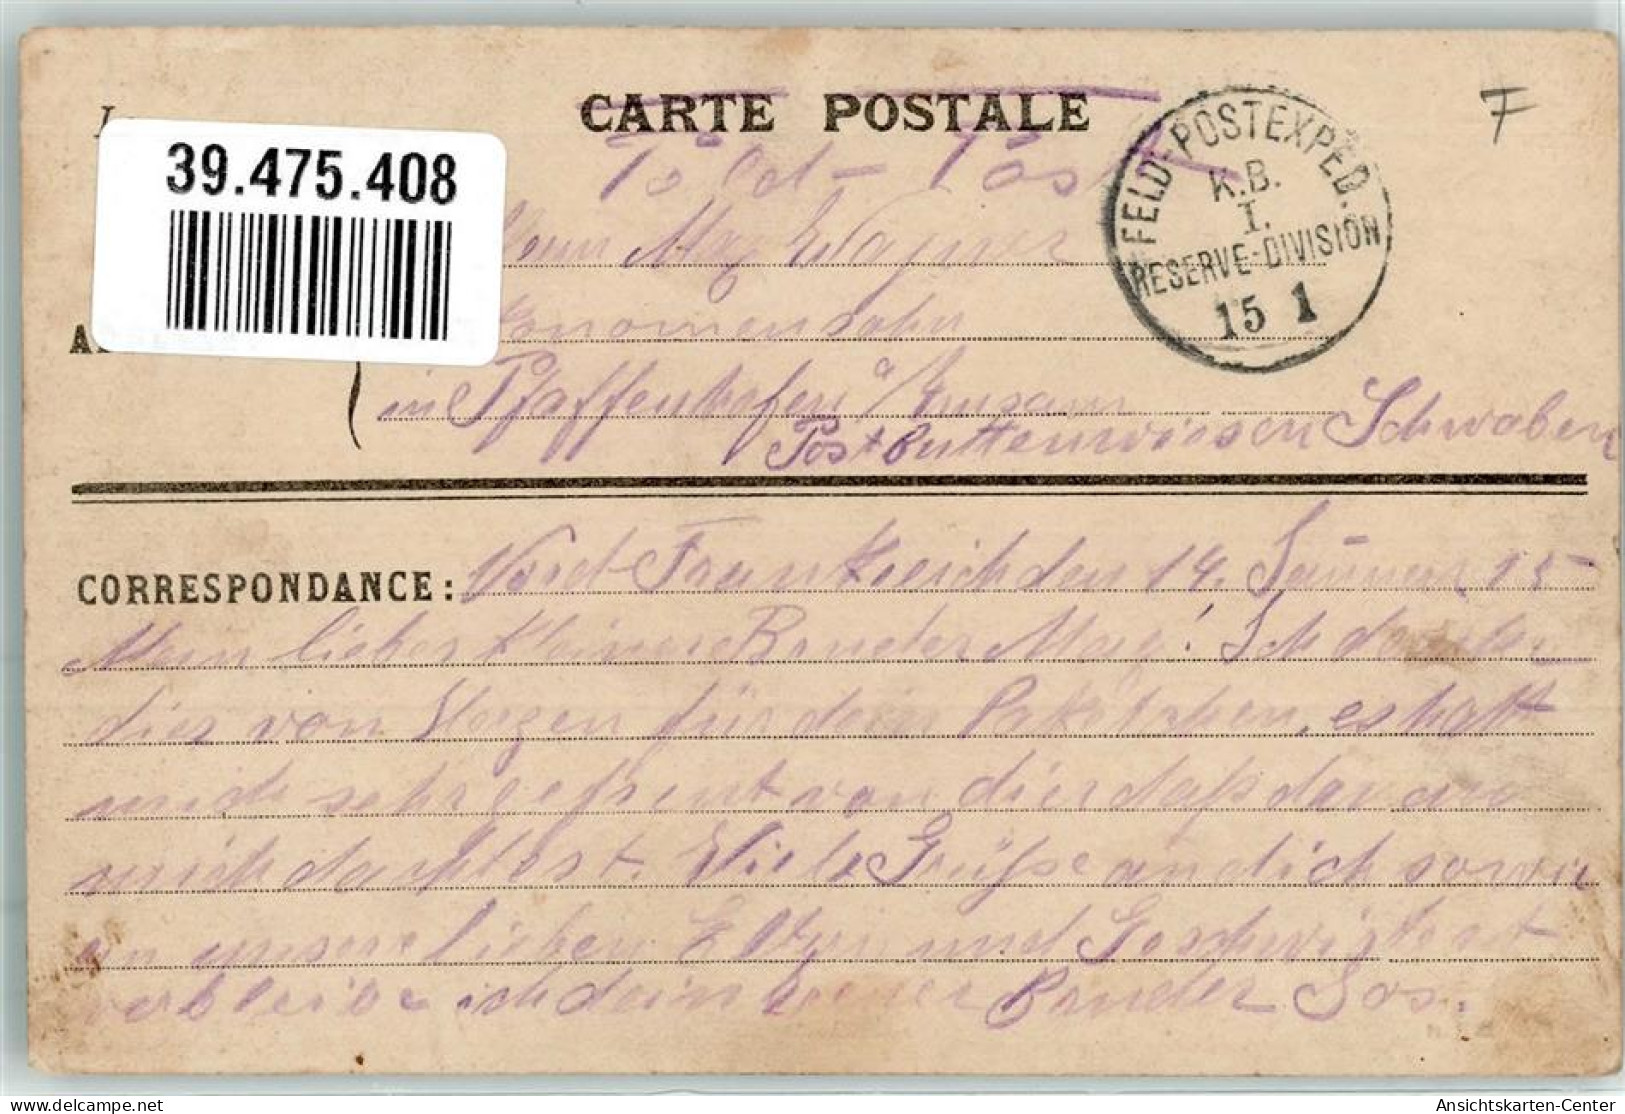 CARTE POSTALE
F
39.475.408
Feld-Post
FELD-POSTEXPED.
K.B.
I.
RESERVE-DIVISION
15 1
Max Wagner
Ökonomensohn
in Pfaffenhofen a/Zusam
Post Buttenwiesen Schwaben
CORRESPONDANCE: Nord Frankreich den 14. Januar 15
Mein lieber kleiner Bruder Max! Ich danke
dies von Herzen für dein Paketchen, es hatt
mich sehr gefreut von dier daß du an
mich dachtest. Viele Grüße an dich sowie
an unsere lieben Eltern und Geschwistert
verbleibe ich dein treuer Bruder Jos.
delcampe.net
Ansichtskarten-Center